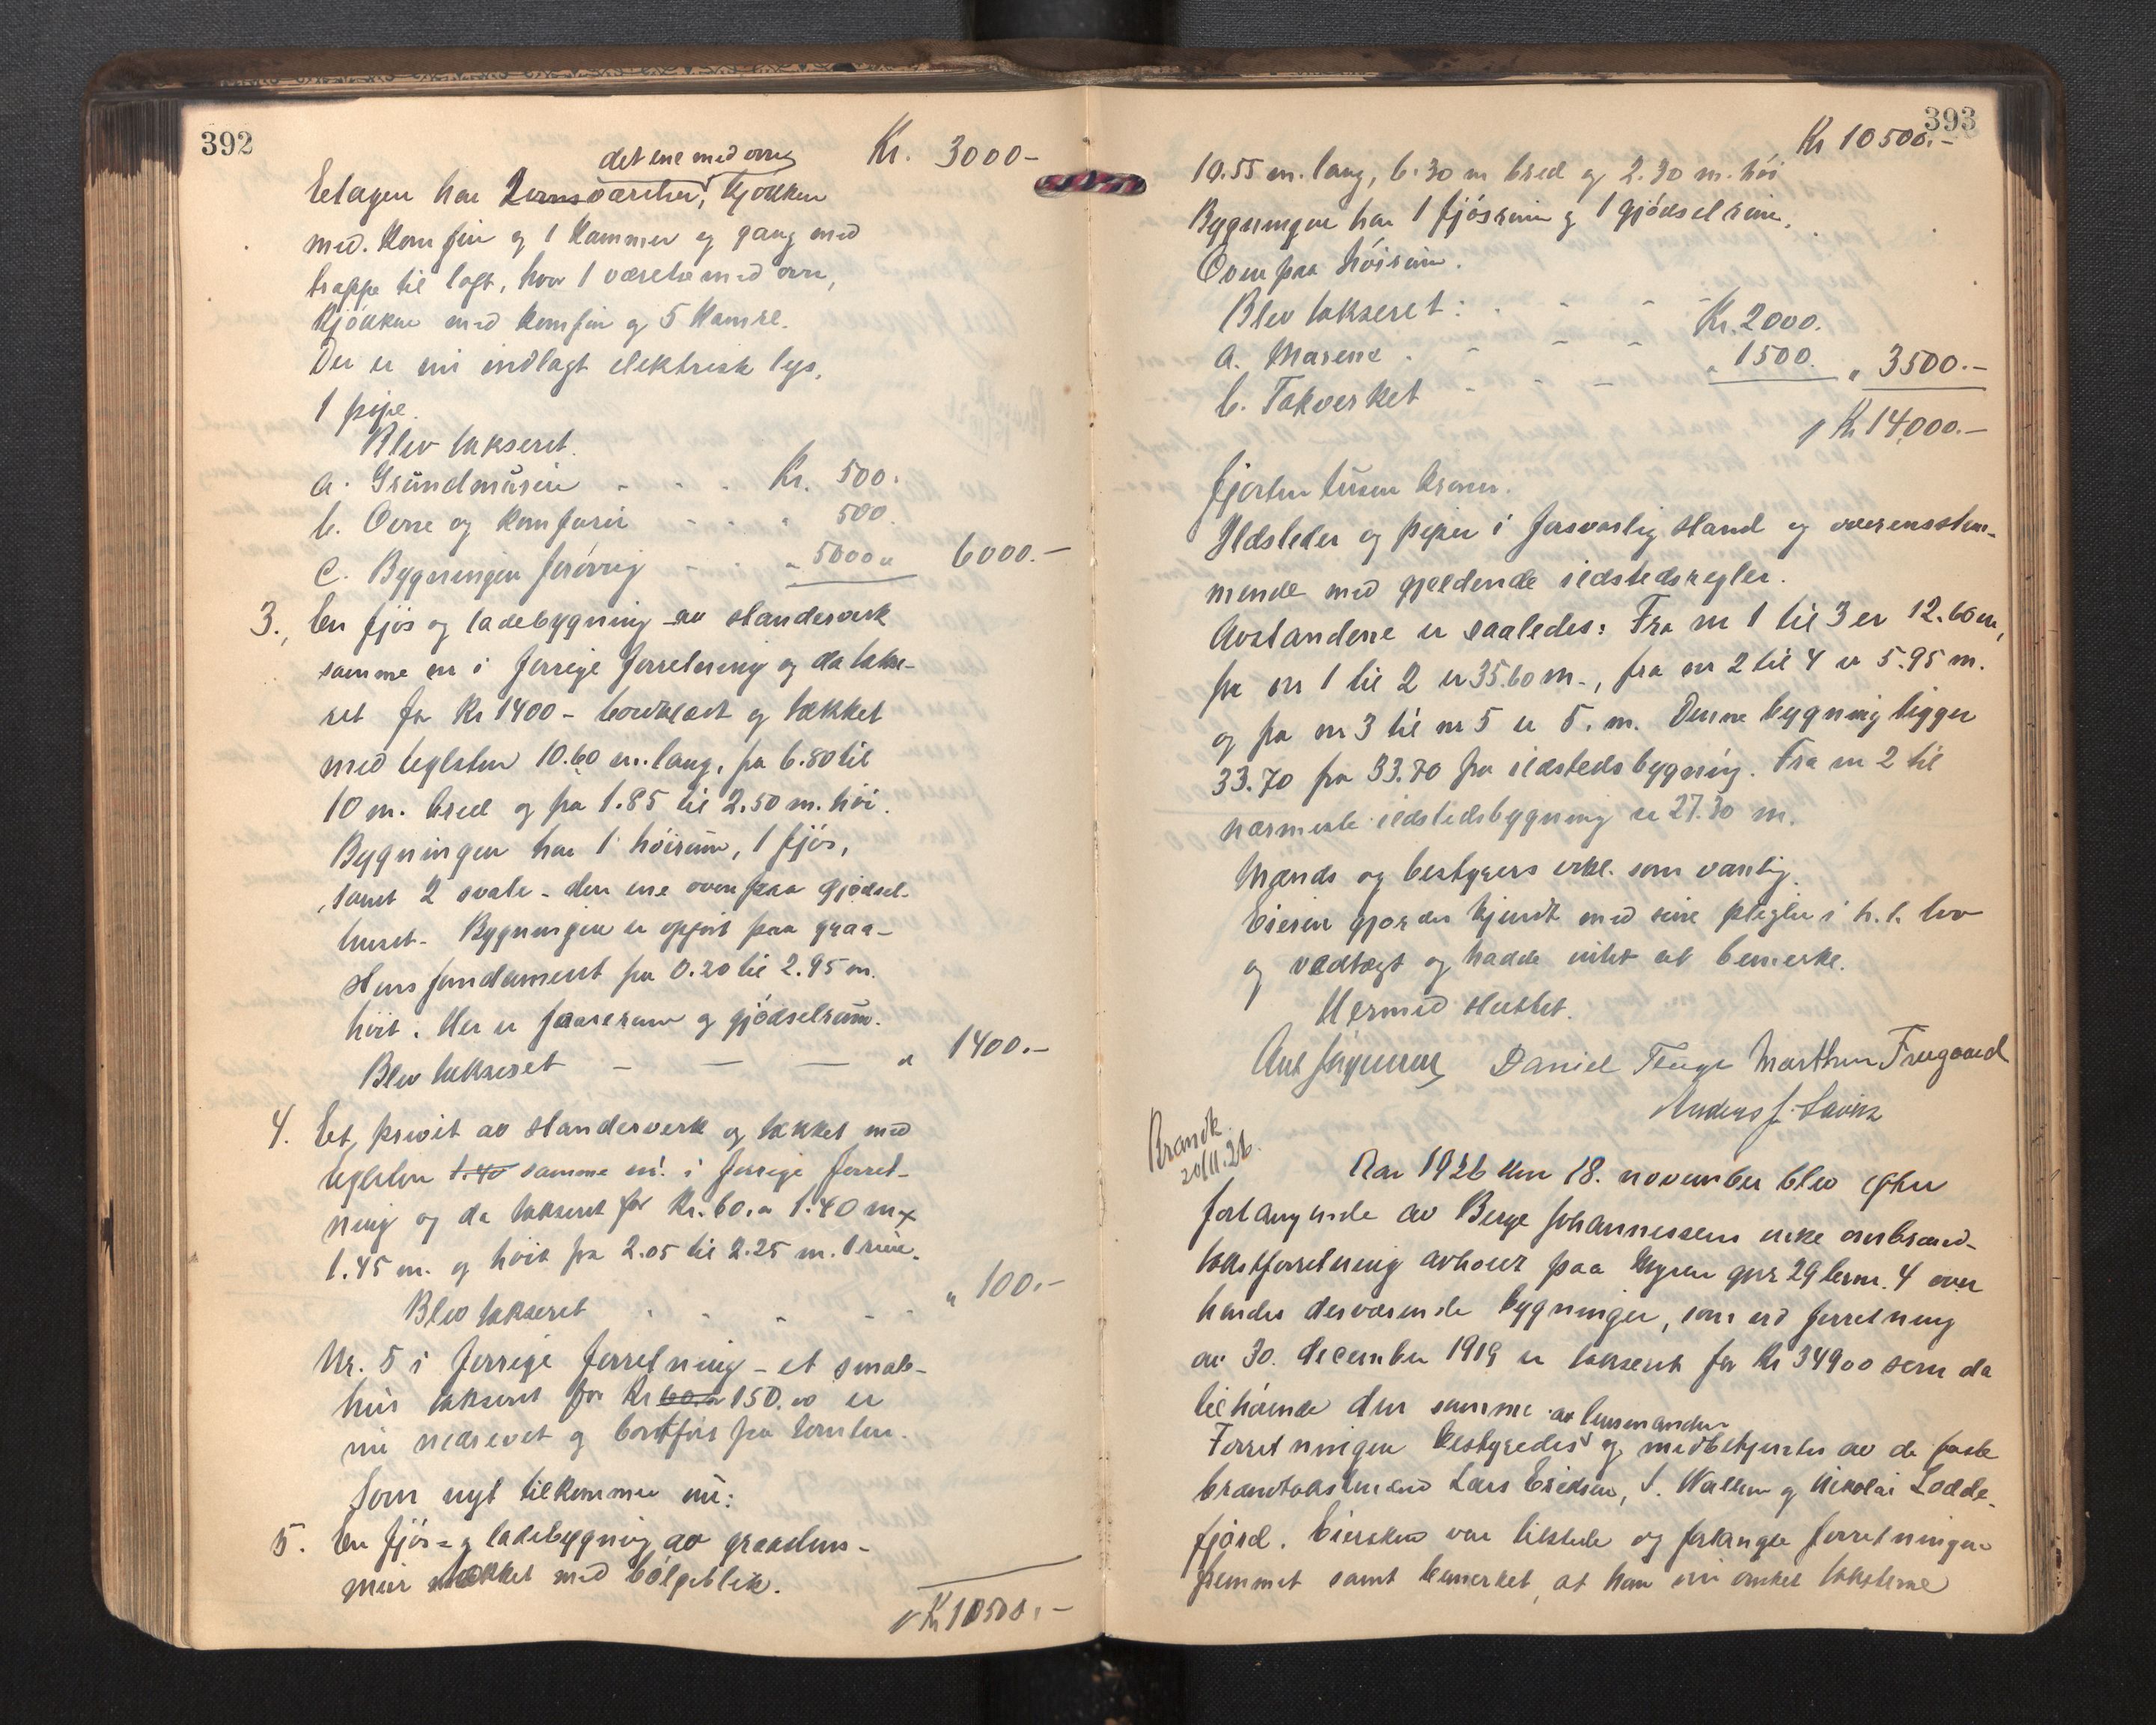 392
Kr. 3000-
det ene med ovn
Etagen har 2 værelser, kjökken
med komfur og 1 kammer og gang med
trappe til loft, hvor 1 værelse med ovn,
kjökken med komfur og 5 kamre.
Der er nu indlagt elektrisk lys.
1 pipe.
Blev takseret.
a. Grundmuren - - - Kr. 500.
b. Ovne og komfurer - - - " 500.
c. Bygningen forövrig - - " 5000 " 6000.-
3. En fjös og ladebygning av standerverk
samme nr i forrige forretning og da takse-
ret for Kr 1400 - bordklædt og tækket
med teglsten 10.60 m. lang, fra 6.80 til
10 m. bred og fra 1.85 til 2.50 m. höi.
Bygningen har 1 höirum, 1 fjös,
samt 2 svale - den ene ovenpaa gjödsel-
huset. Bygningen er opfört paa graa-
stens fundament fra 0.20 til 2.95 m.
höit. Her er faarerum og gjödselrum.
Blev takseret - - - " 1400.-
4. Et privet av standerverk og tækket med
teglsten 1.40 samme nr. i forrige forret-
ning og da takseret for Kr. 60.- 1.40 m x
1.45 m. og höit fra 2.05 til 2.25 m. 1 rum.
Blev takseret - - - - " 100.-
Nr. 5 i forrige forretning - et smale-
hus takseret for Kr 60.- 150.00 er
nu nedrevet og bortfört fra tomten.
Som nyt tilkommer nu:
5. En fjös- og ladebygning av graastens-
mur tækket med bölgeblik.
Kr 10500.-
393
Kr 10500.-
10.55 m. lang, 6.30 m bred og 2.30 m. höi
Bygningen har 1 fjösrum og 1 gjödselrum.
Ovenpaa höirum.
Blev takseret:
a. Murene - - - - Kr. 2000.
b. Takverket - - - - " 1500. " 3500.-
Kr 14,000.-
fjorten tusen kroner.
Ildsteder og piper i forsvarlig stand og overensstem-
mende med gjeldende ildstedsregler.
Avstandene er saaledes: Fra nr 1 til 3 er 12.60 m,
fra nr 1 til 2 er 35.60 m., fra nr 2 til 4 er 5.95 m.
og fra nr 3 til nr 5 er 5. m. Denne bygning ligger
33.70 fra 33.70 fra ildstedsbygning. Fra nr 2 til
nærmeste ildstedsbygning er 27.30 m.
Mænds og bestyrers erkl. som vanlig.
Eieren gjordes kjendt med sine pligter i h.t. lov
og vedtægt og hadde intet at bemerke.
Hermed sluttet.
Daniel Marthin
Anders J.
Brandk.
20/11.26.
Aar 1926 den 18. november blev efter
forlangende av Berge Johannessens enke ombrand-
takstforretning avholdt paa Myren gnr 29 bnr. 4 over
hendes derværende bygninger, som ved forretning
av 30. december 1919 er takseret for Kr 34900 som da
tilhörende den samme.
av lensmanden
Forretningen bestyredes og medbetjentes av de faste
brandtakstmænd Lars Eriksen, S. Wallem og Nikolai Lodde-
fjord. Eiersken var tilstede og forlangte forretningen
fremmet samt bemerket, at hun nu ønsket takstene